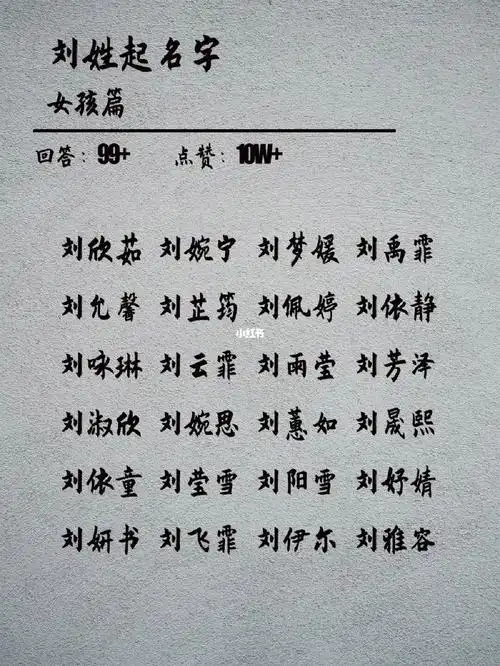 刘姓起名字
女孩篇
回答：99+ 点赞：10W+
刘欣茹 刘婉宁 刘梦媛 刘禹霏
刘允馨 刘芷筠 刘佩婷 刘依静
小红书
刘咏琳 刘云霏 刘雨莹 刘芳泽
刘淑欣 刘婉思 刘蕙如 刘晟熙
刘依童 刘莹雪 刘阳雪 刘妤婧
刘妍书 刘飞霏 刘伊尔 刘雅容